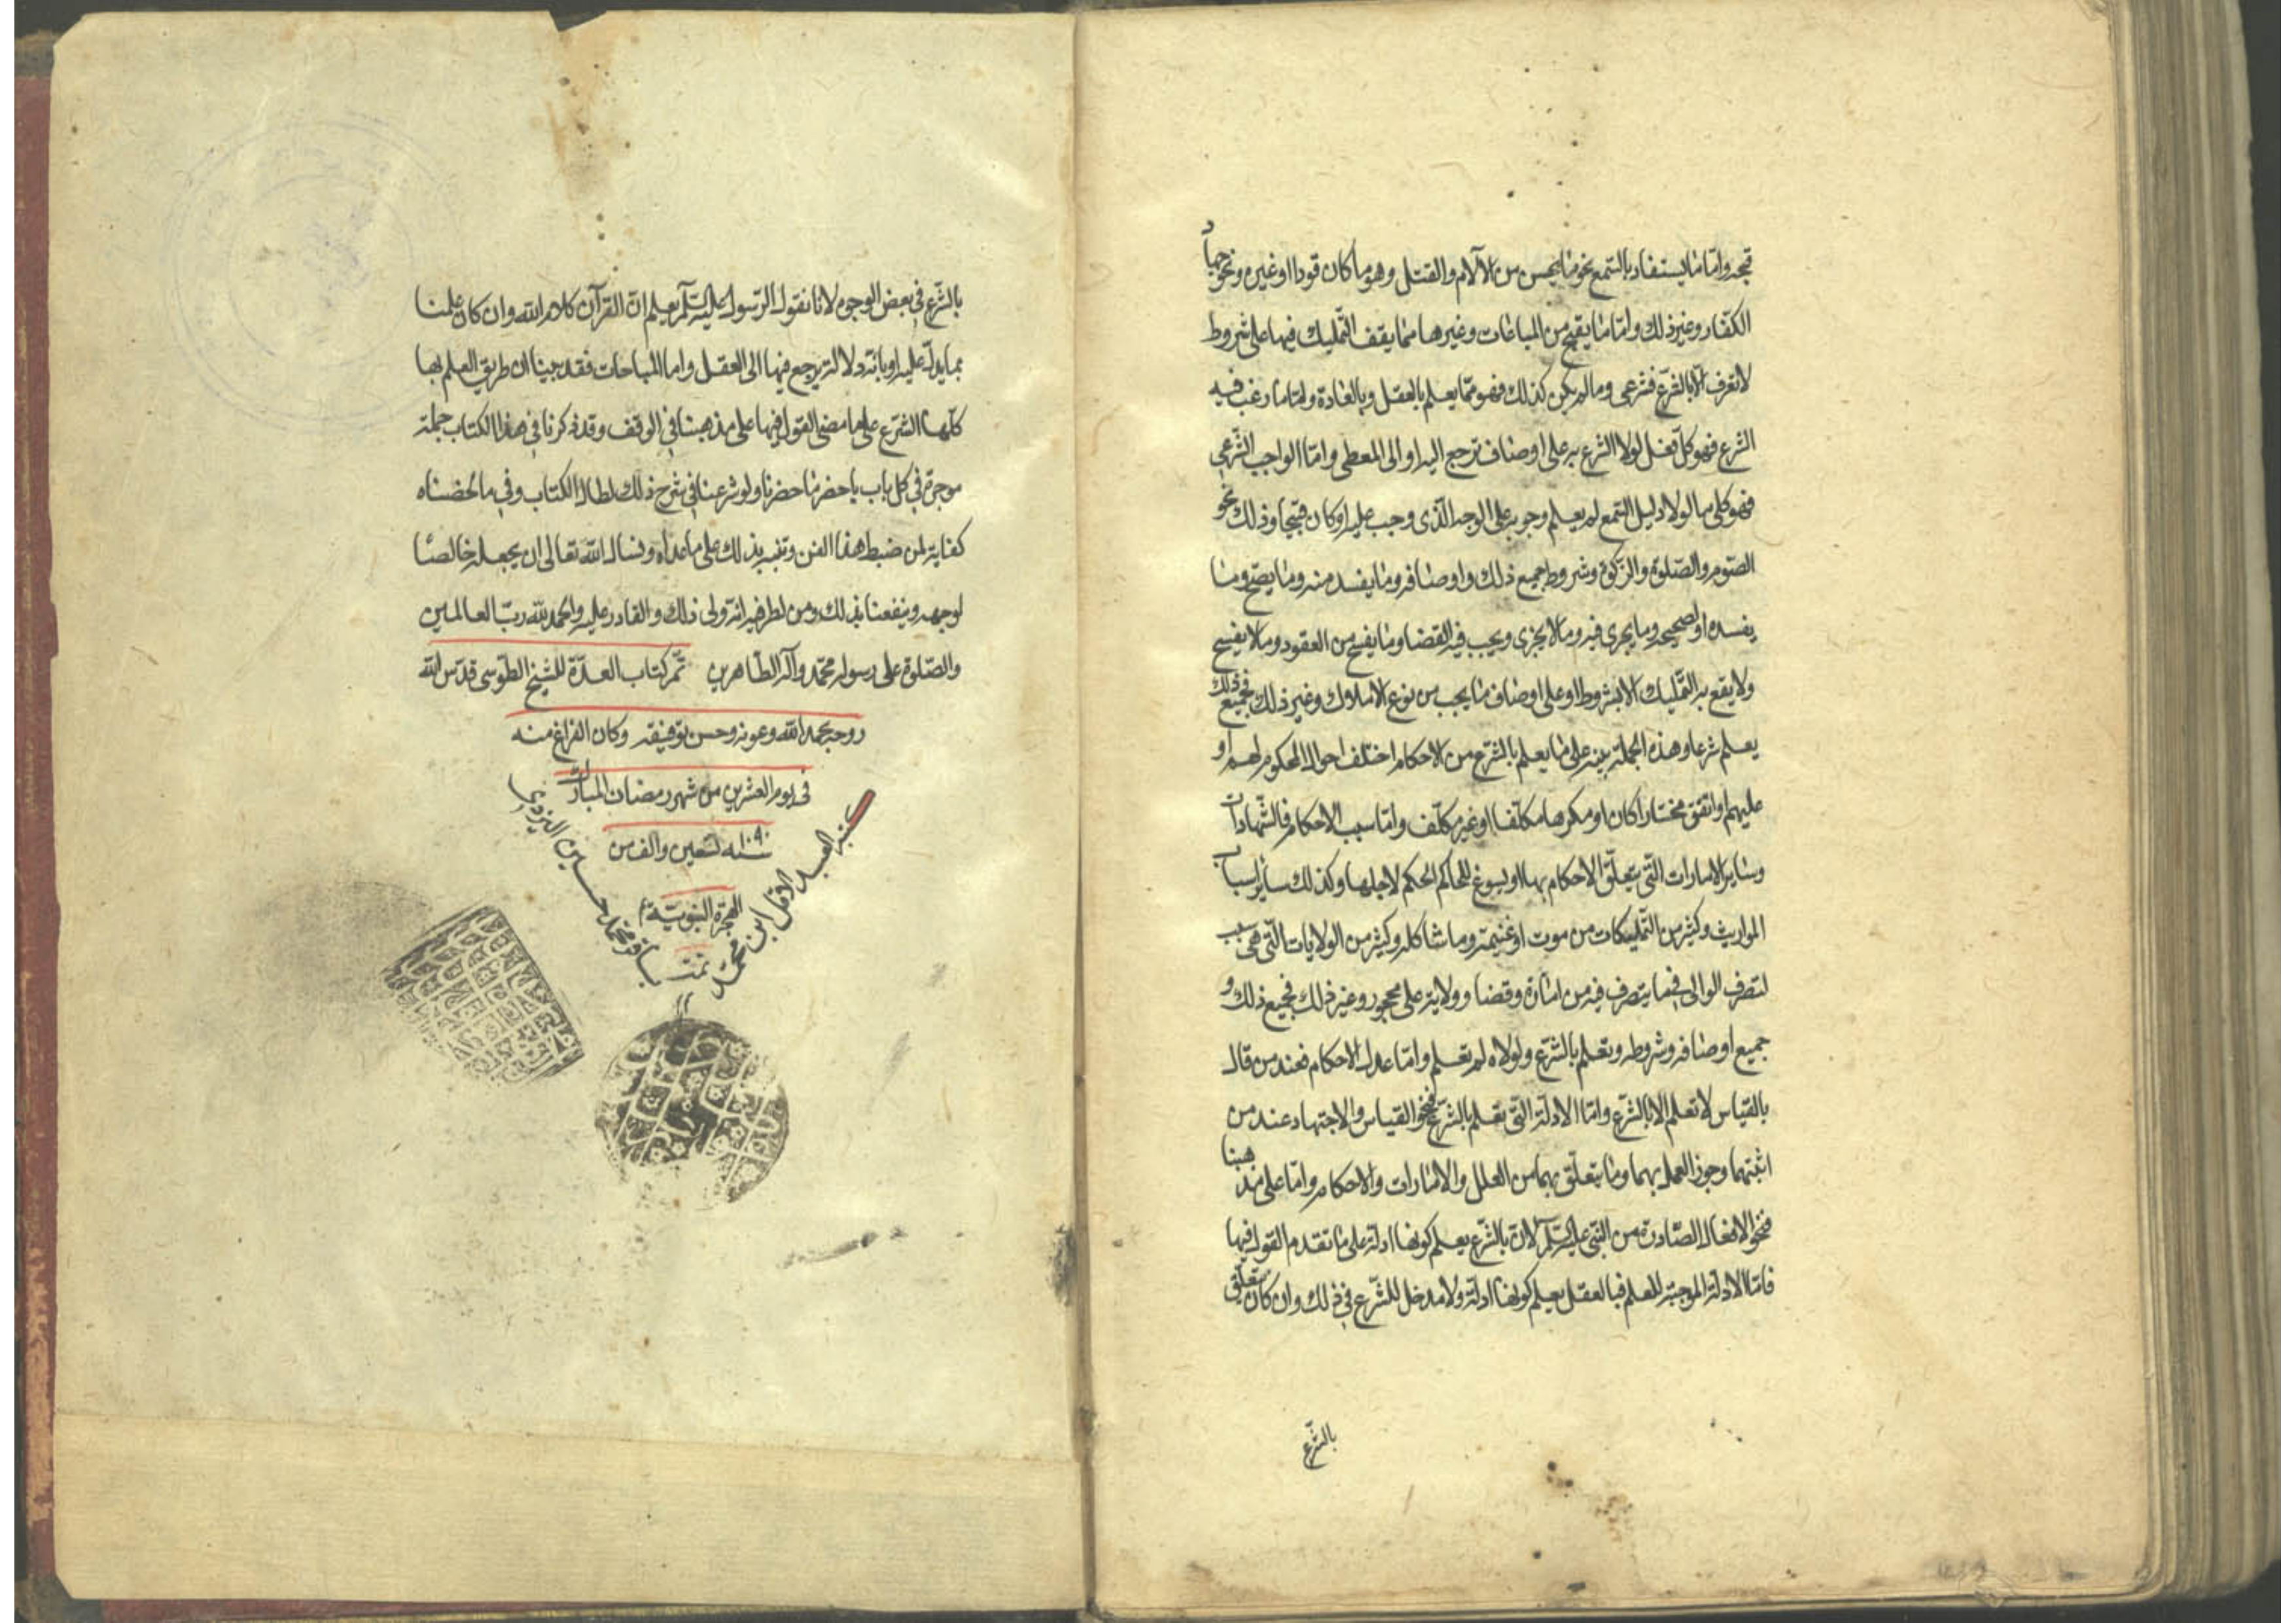 قبحه واما ما يستفاد بالسمع نحو ما يحسن من الآلام والقتل وهو ما كان قودا او غيره ونحو جهاد
الكفار وغير ذلك واما ما يقبح من المباغات وغيرها مما يقف التمليك فيها على شروط
لا تعرف الا بالشرع فشرعى وما لم يكن كذلك فهو مما يعلم بالعقل وبالعادة واما ما رغب فيه
الشرع فهو كل فعل لولا الشرع به على اوصاف ترجع اليه او الى المعطى واما الواجب الشرعى
فهو كلى ما لولا دليل السمع لم يعلم وجوبه على الوجه الذى وجب عليه او كان قبيحا وذلك نحو
الصوم والصلوة والزكوة وشروط جميع ذلك واوصافه وما يفسد منه وما يصح وما
يفسده او صحيحه وما يجرى فيه وما لا يجزى ويجب فيه القضا وما يفسخ من العقود وما لا يفسخ
ولا يقع به التمليك الا بشروط او على اوصاف ما يجب من نوع الاملاك وغير ذلك فجميع ذلك
يعلم شرعا وهذه الجملة بينه على ما يعلم بالشرع من الاحكام اختلف احوال المحكوم لهم او
عليهم او اتفق مختارا كان او مكرها مكلفا او غير مكلف واما سبب الاحكام فالشهادات
وساير الامارات التى يتعلق الاحكام بها او يسوغ للحاكم الحكم لاجلها وكذلك ساير اسباب
المواريث وكثير من التمليكات من موت او غنيمة وما شاكله وكثير من الولايات التى هى سبب
لتصرف الوالى فيما يتصرف فيه من امارة وقضا وولاية على محجور وغير ذلك فجميع ذلك و
جميع اوصافه وشروطه وتعلم بالشرع ولولاه لم تعلم واما علل الاحكام فعند من قال
بالقياس لا تعلم الا بالشرع واما الادلة التى تعلم بالشرع فنحو القياس والاجتهاد عند من
اثبتهما وجوز العمل بهما وما يتعلق بهما من العلل والامارات والاحكام واما على مذهبنا
فنحو الافعال الصادرة من النبى عليه السلم لان بالشرع يعلم كونها ادلة على ما تقدم القول فيها
فاما الادلة الموجبة للعلم فبالعقل يعلم كونها ادلة ولا مدخل للشرع فى ذلك وان كان يتعلق
بالشرع
بالشرع فى بعض الوجوه لانا نقول الرسول عليه السلم يعلم ان القرآن كلام الله وان كان علمنا
بما يدل عليه او بانه دلالة يرجع فيها الى العقل واما المباحات فقد بينا ان طريق العلم بها
كلها الشرع على ما مضى القول فيها على مذهبنا فى الوقف وقد ذكرنا فى هذا الكتاب جملة
موجزة فى كل باب باحضر ما حضرنا ولو شرعنا فى شرح ذلك لطال الكتاب وفى ما لخصناه
كفاية لمن ضبط هذا الفن وتنبه بذلك على ما عداه ونسال الله تعالى ان يجعله خالصا
لوجهه وينفعنا بذلك ومن نظر فيه انه ولى ذلك والقادر عليه والحمد لله رب العالمين
والصلوة على رسوله محمد وآله الطاهرين تم كتاب العدة للشيخ الطوسى قدس الله
روحه بحمد الله وعونه وحسن توفيقه وكان الفراغ منه
فى يوم العشرين من شهر رمضان المبارك
سنه ١٠٩٠ تسعين والف من
الهجرة النبوية
كتبه العبد الاقل ابن محمد
باقر محمد حسين اليزدى
تمت